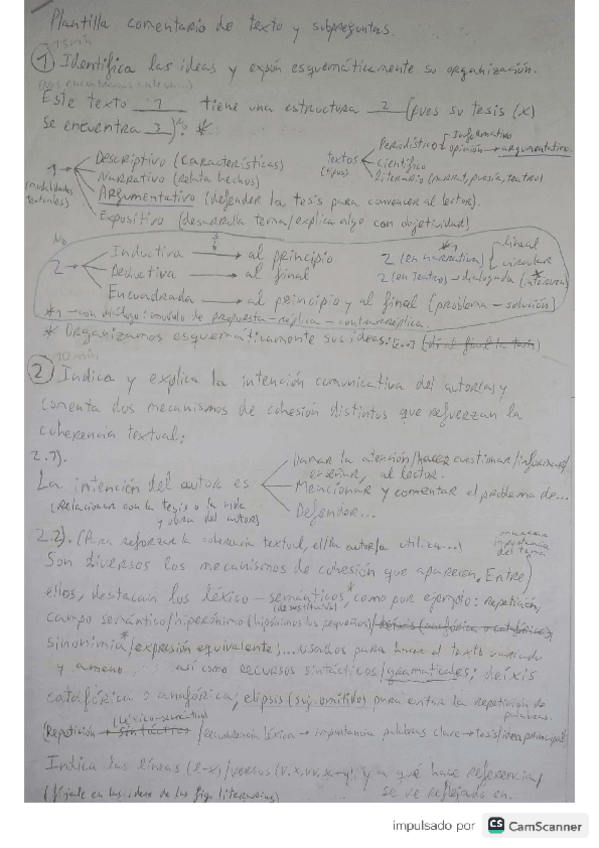 Plantilla comentario de texto y subpreguntas.
15 min
1 Identifica las ideas y expón esquemáticamente su organización.
Este texto 1 tiene una estructura 2 (pues su tesis (x)
se encuentra 3) *
textos (tipos)
Periodístico
Informativo
opinión → argumentativo
científico
literario (narrat, poesía, teatro)
1 → (modalidades textuales)
Descriptivo (características)
Narrativo (relata hechos)
Argumentativo (defender la tesis para convencer al lector).
Expositivo (desarrolla tema/explica algo con objetividad)
2 →
Inductiva → al principio
Deductiva → al final
Encuadrada → al principio y al final (problema - solución)
3
*1
2 (en narrativa)
lineal
circular
2 (en teatro) → dialogada
*1 → con diálogo: módulo de propuesta-réplica-contrarréplica.
* Organizamos esquemáticamente sus ideas:
10 min
2 Indica y explica la intención comunicativa del autor(a) y
comenta dos mecanismos de cohesión distintos que refuerzan la
coherencia textual:
2.1).
La intención del autor es
(Relacionar con la tesis o la vida
y obra del autor)
Llamar la atención/hacer cuestionar/informar/
enseñar, al lector.
Mencionar y comentar el problema de...
Defender...
2.2). (Para reforzar la coherencia textual, el/la autor/a utiliza...)
importancia
del tema
Son diversos los mecanismos de cohesión que aparecen. Entre
ellos, destacan los léxico-semánticos*, como por ejemplo: repetición,
campo semántico/hiperónimo (hipónimos los pequeños)
sinonimia*/expresión equivalente)...usados para hacer el texto variado
y ameno así como recursos sintácticos/gramaticales; deíxis
catafórica o anafórica, elipsis (suj. omitidos) para evitar la repetición de
palabras.
(léxico-semántica)
(Repetición → sintáctico /recurrencia léxica → importancia palabras clave → tesis/idea principal)
Indica las líneas (l-x)/versos (v.x, vv. x-y), y a qué hace referencia/
se ve reflejado en.
(fíjate en las ideas de las fig. literarias)
impulsado por CS CamScanner